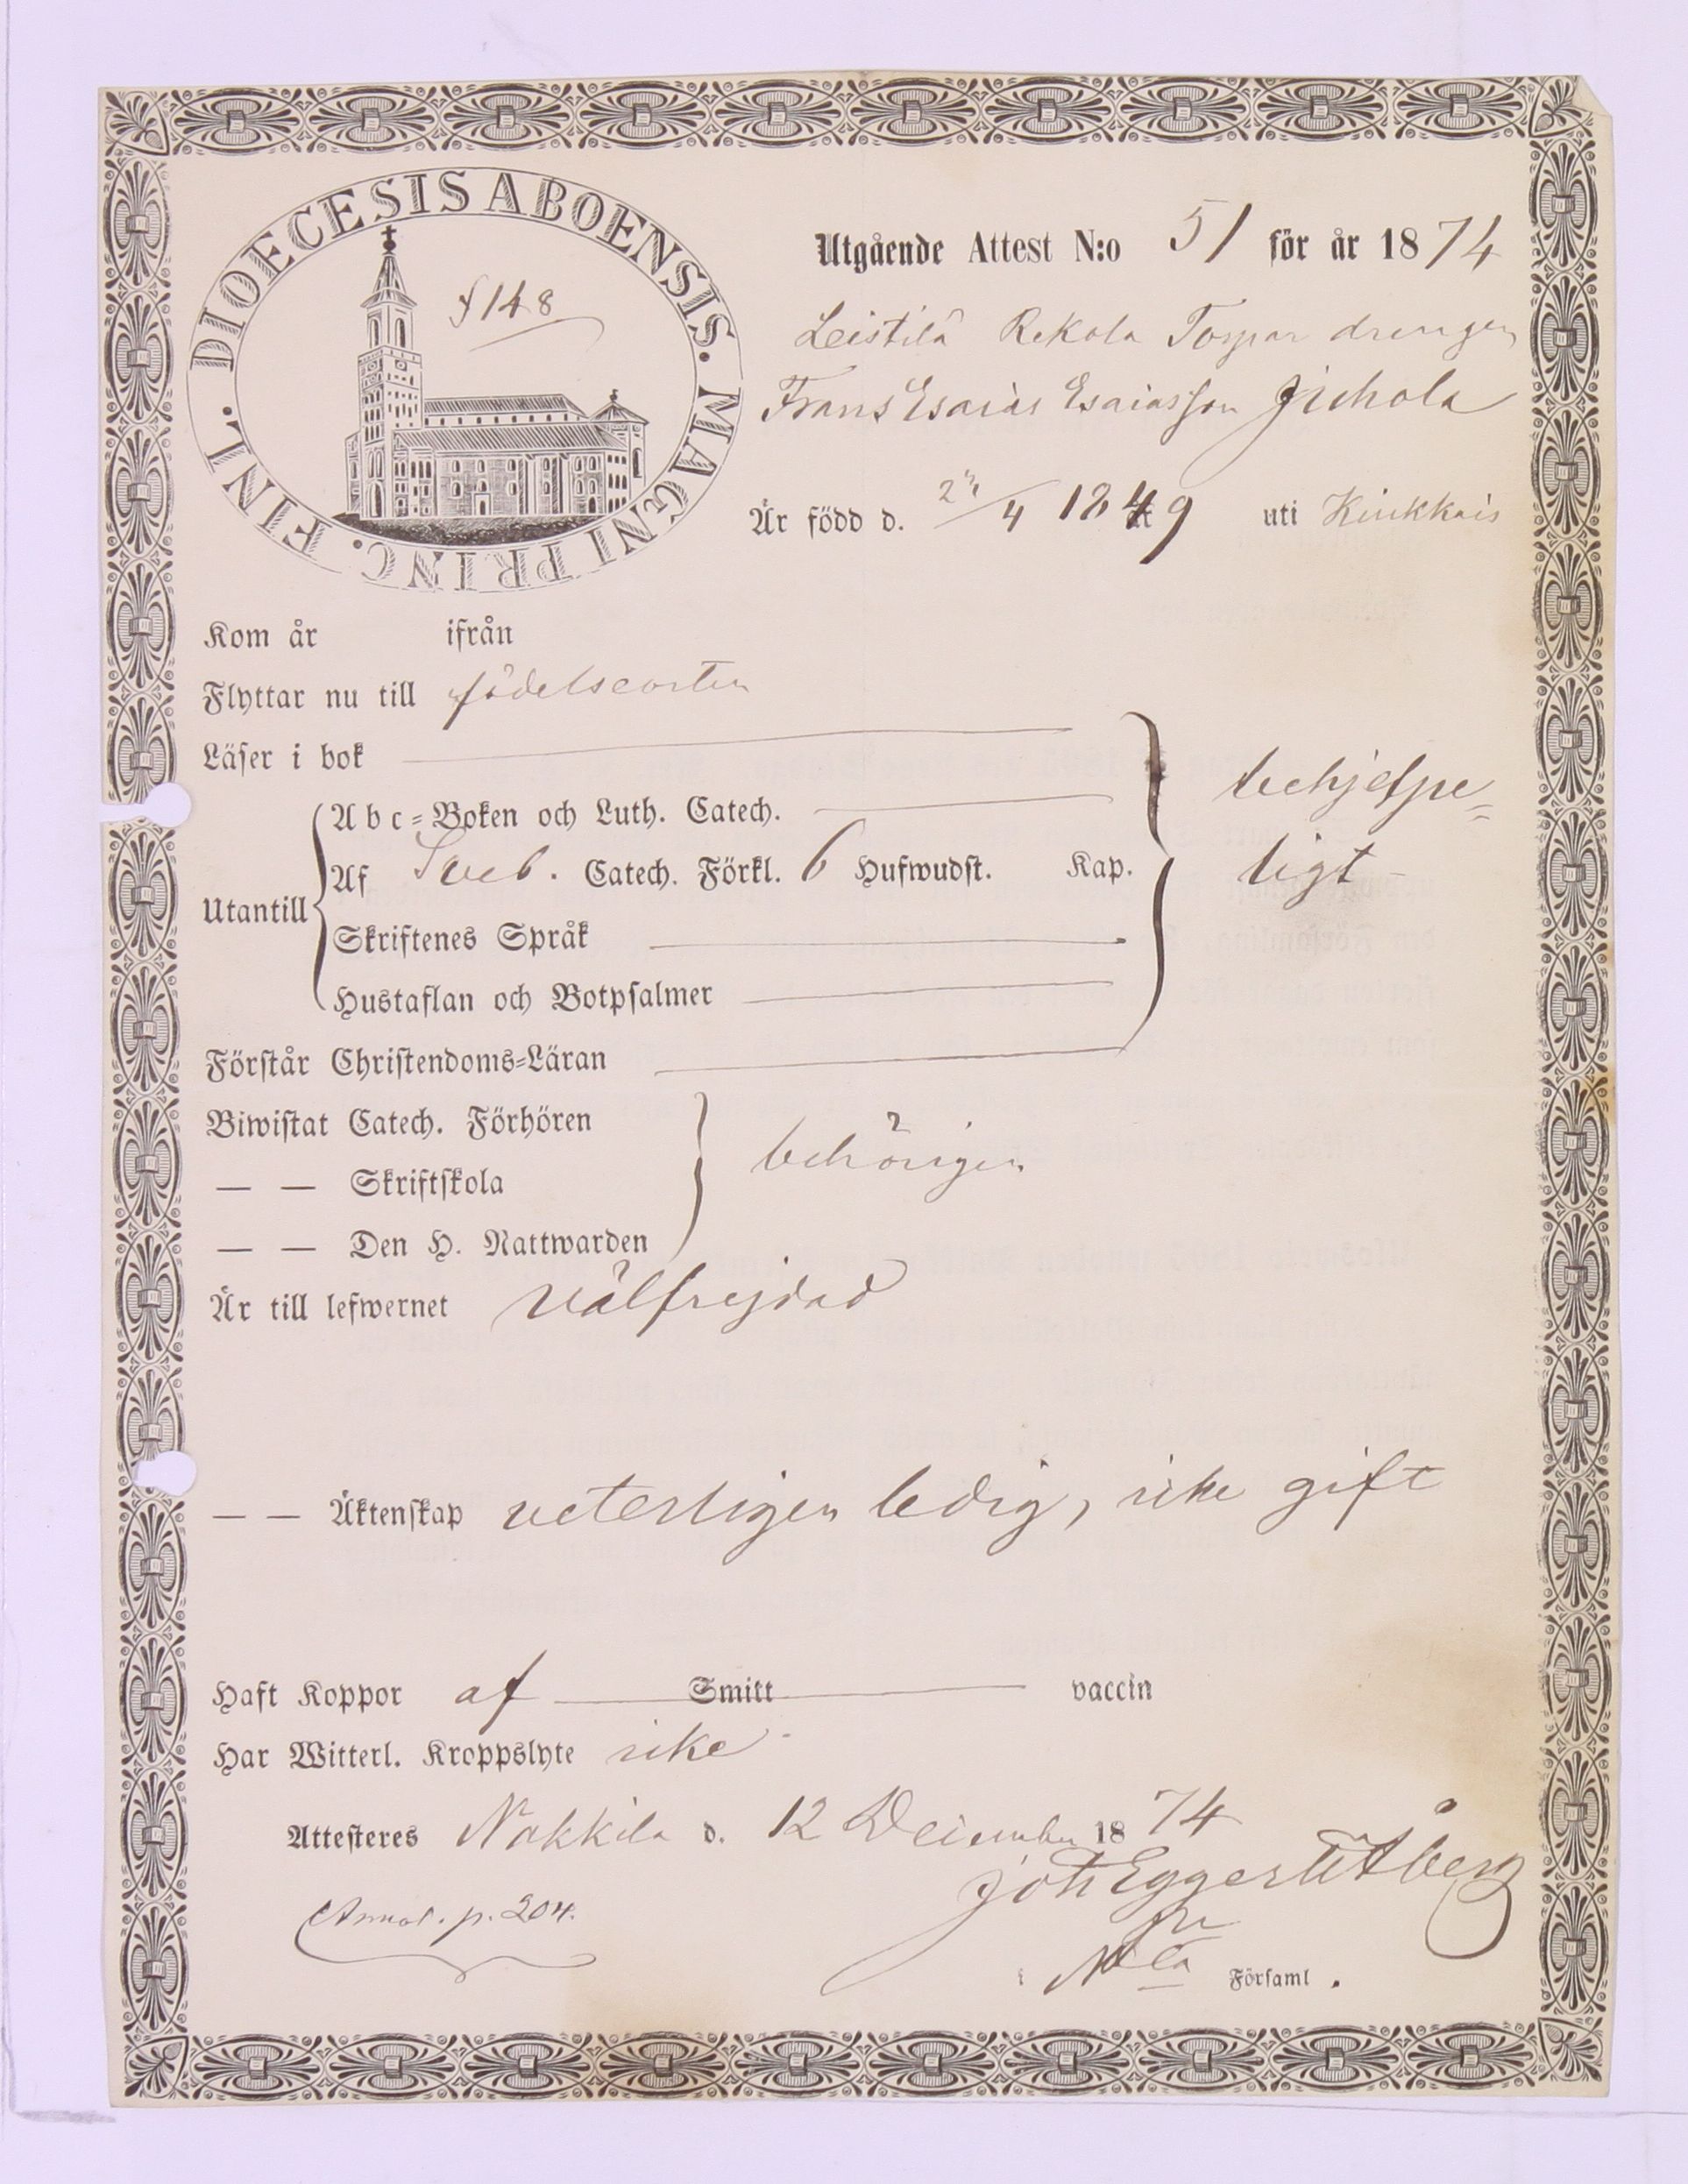 DIOECESIS ABOENSIS. MAGNI PRINC. FINL.
§ 148
Utgående Attest N:o 51 för år 1874
Leistilä Rekola Torpar drengen
Frans Esaias Esaiasson
Är född d. /4 1849 uti
Kom år ifrån
Flyttar nu till födelseorten
Läser i bok
Utantill
Abc-Boken och Luth. Catech.
behjelpe=
Af Sveb. Catech. Förkl. 6 Hufwudst. Kap.
ligt
Skriftenes Språk
Hustaflan och Botpsalmer
Förstår Christendoms-Läran
Biwistat Catech. Förhören
behörigen
— — Skriftskola
— — Den H. Nattwarden
Är till lefwernet välfrejdad
— — Äktenskap veterligen ledig, icke gift
Haft Koppor af Smitt vaccin
Har Witterl. Kroppslyte icke
Attesteres Nakkila d. 12 December 1874
Annot. p. 204.
i Församl.